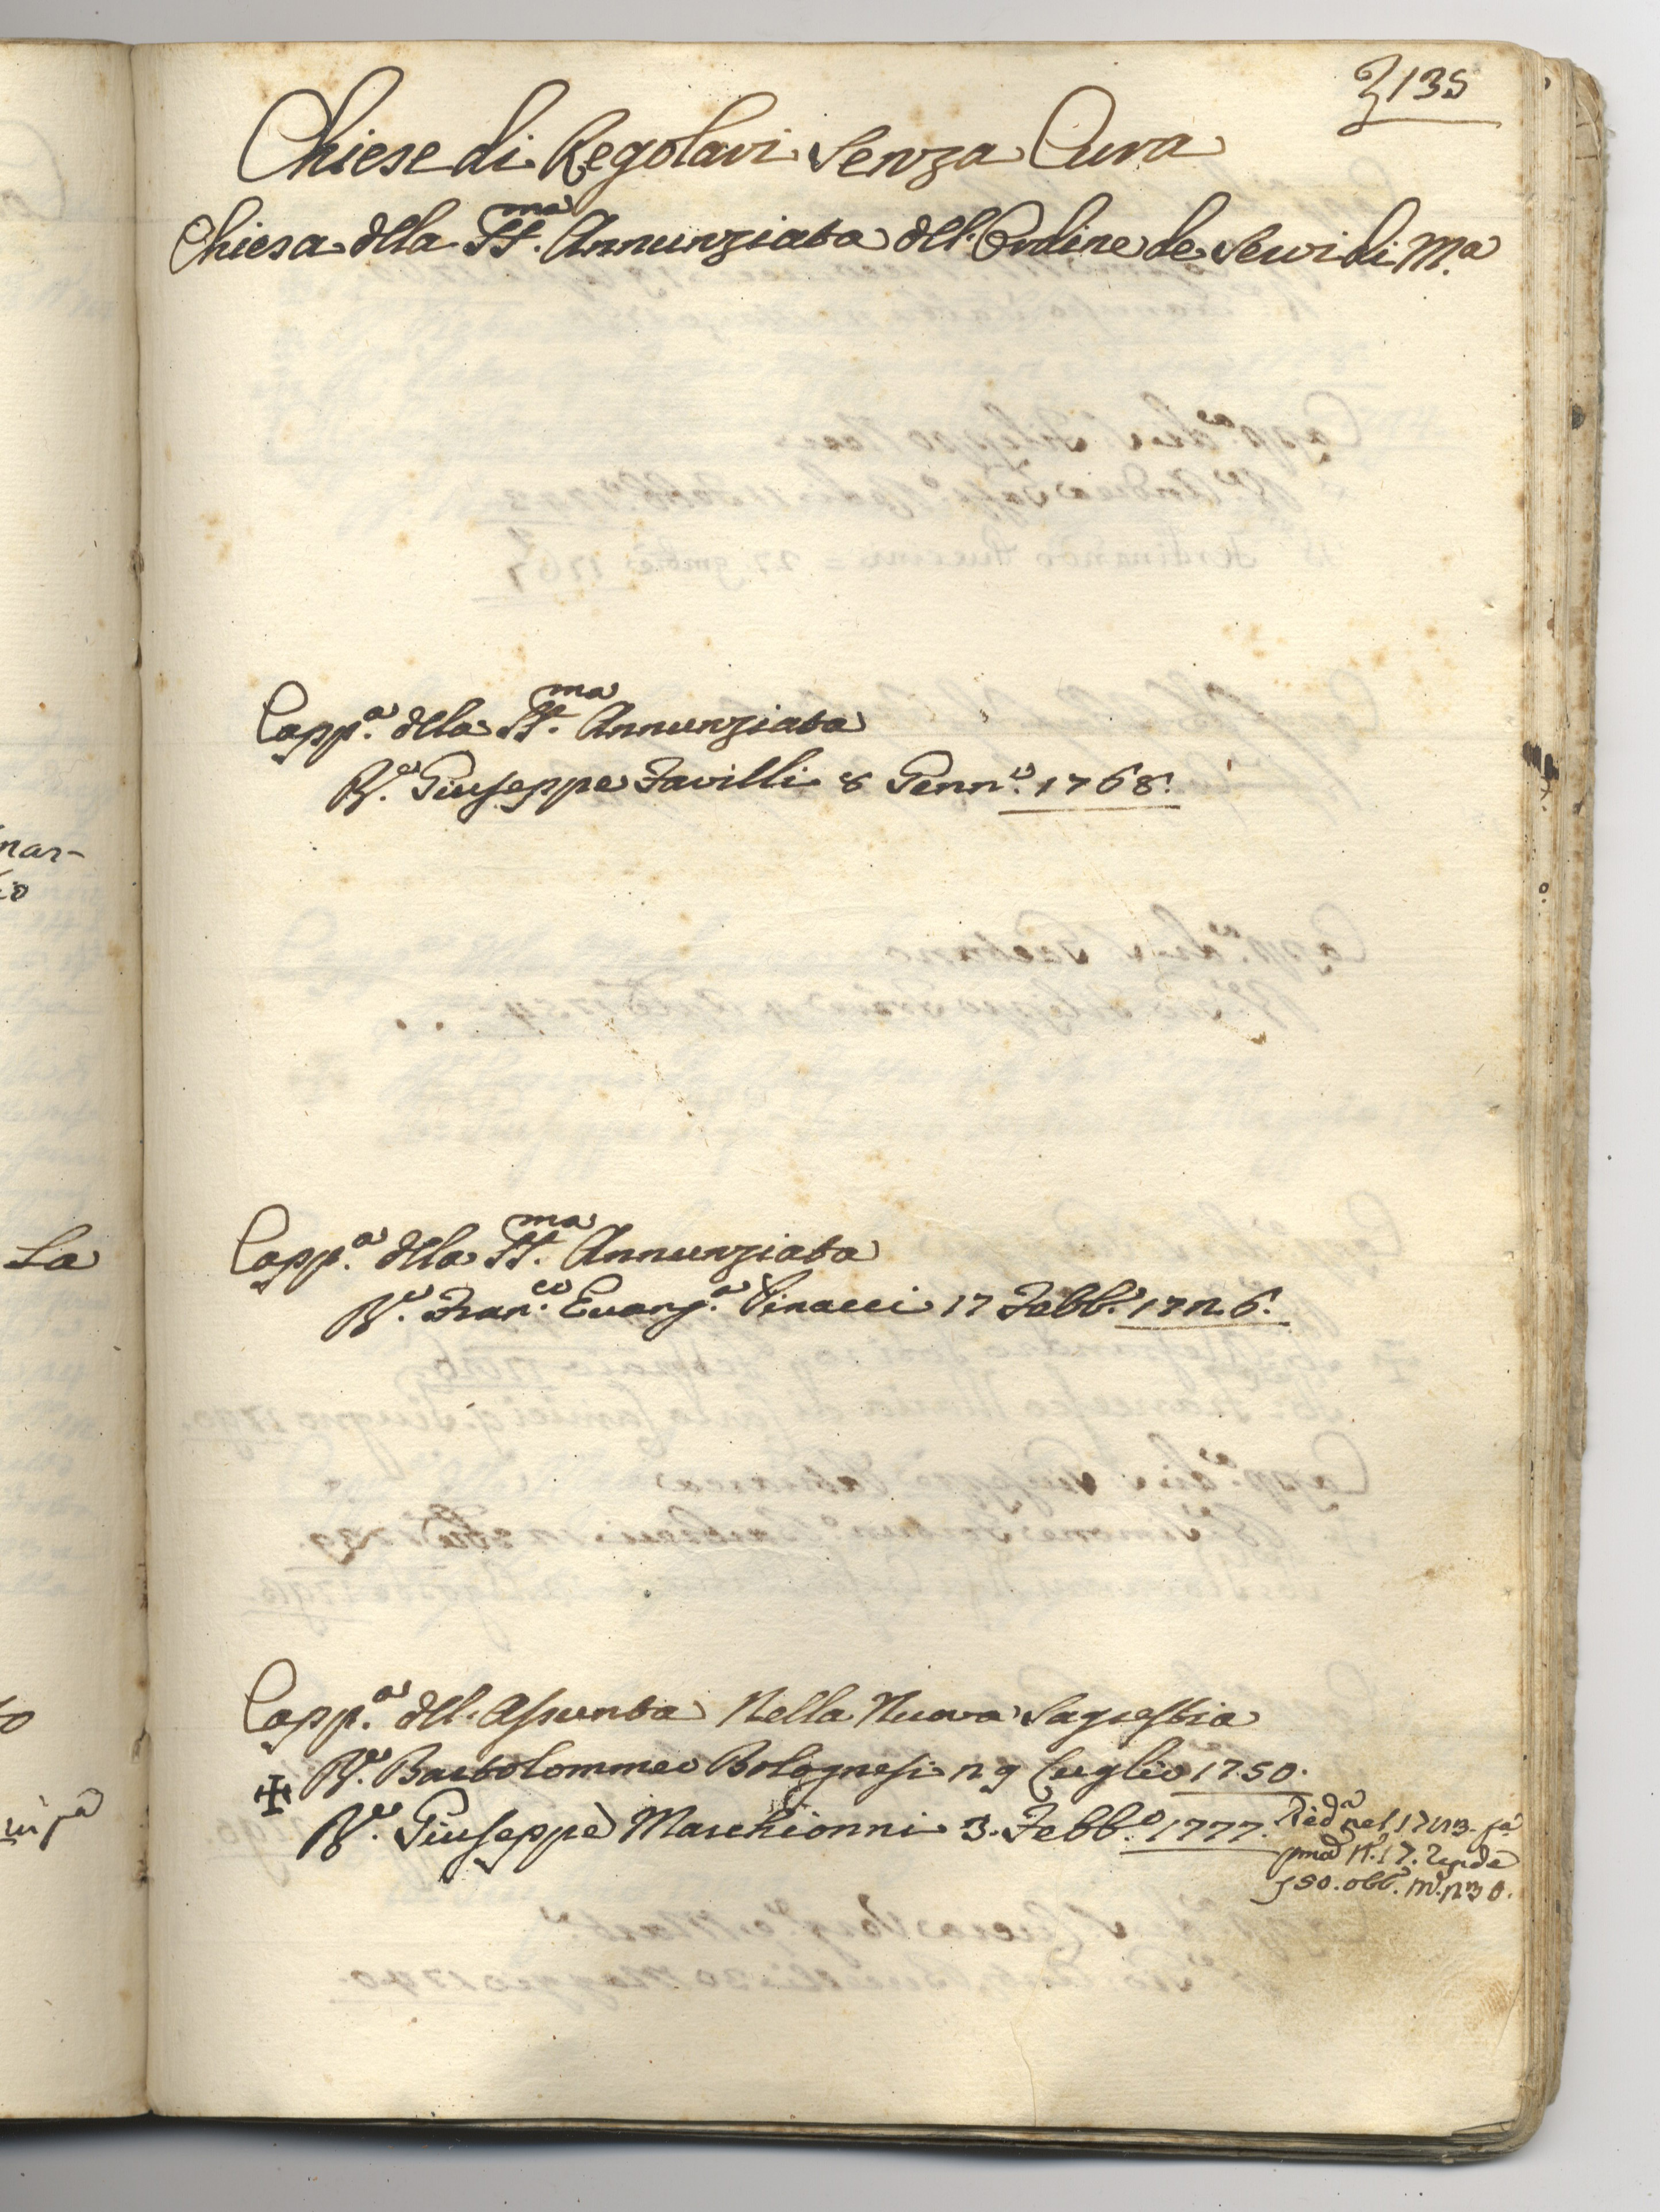 135
Chiese di Regolari Senza Cura
Chiesa della SS.ma Annunziata dell'Ordine de Servi di M.a
Capp.a della SS.ma Annunziata
R.e Giuseppe Favilli 8 Genn.o 1768.
Capp.a della SS.ma Annunziata
R.e Fran.co Evang.a Vinacci 17 Febb.o 1726.
nar-
La
Capp.a dell'Assunta Nella Nuova Sagrestia
R.e Bartolommeo Bolognesi 29 Luglio 1750.
R.e Giuseppe Marchionni 3. Febb.o 1777.
nel
N. 17.
50. obb.